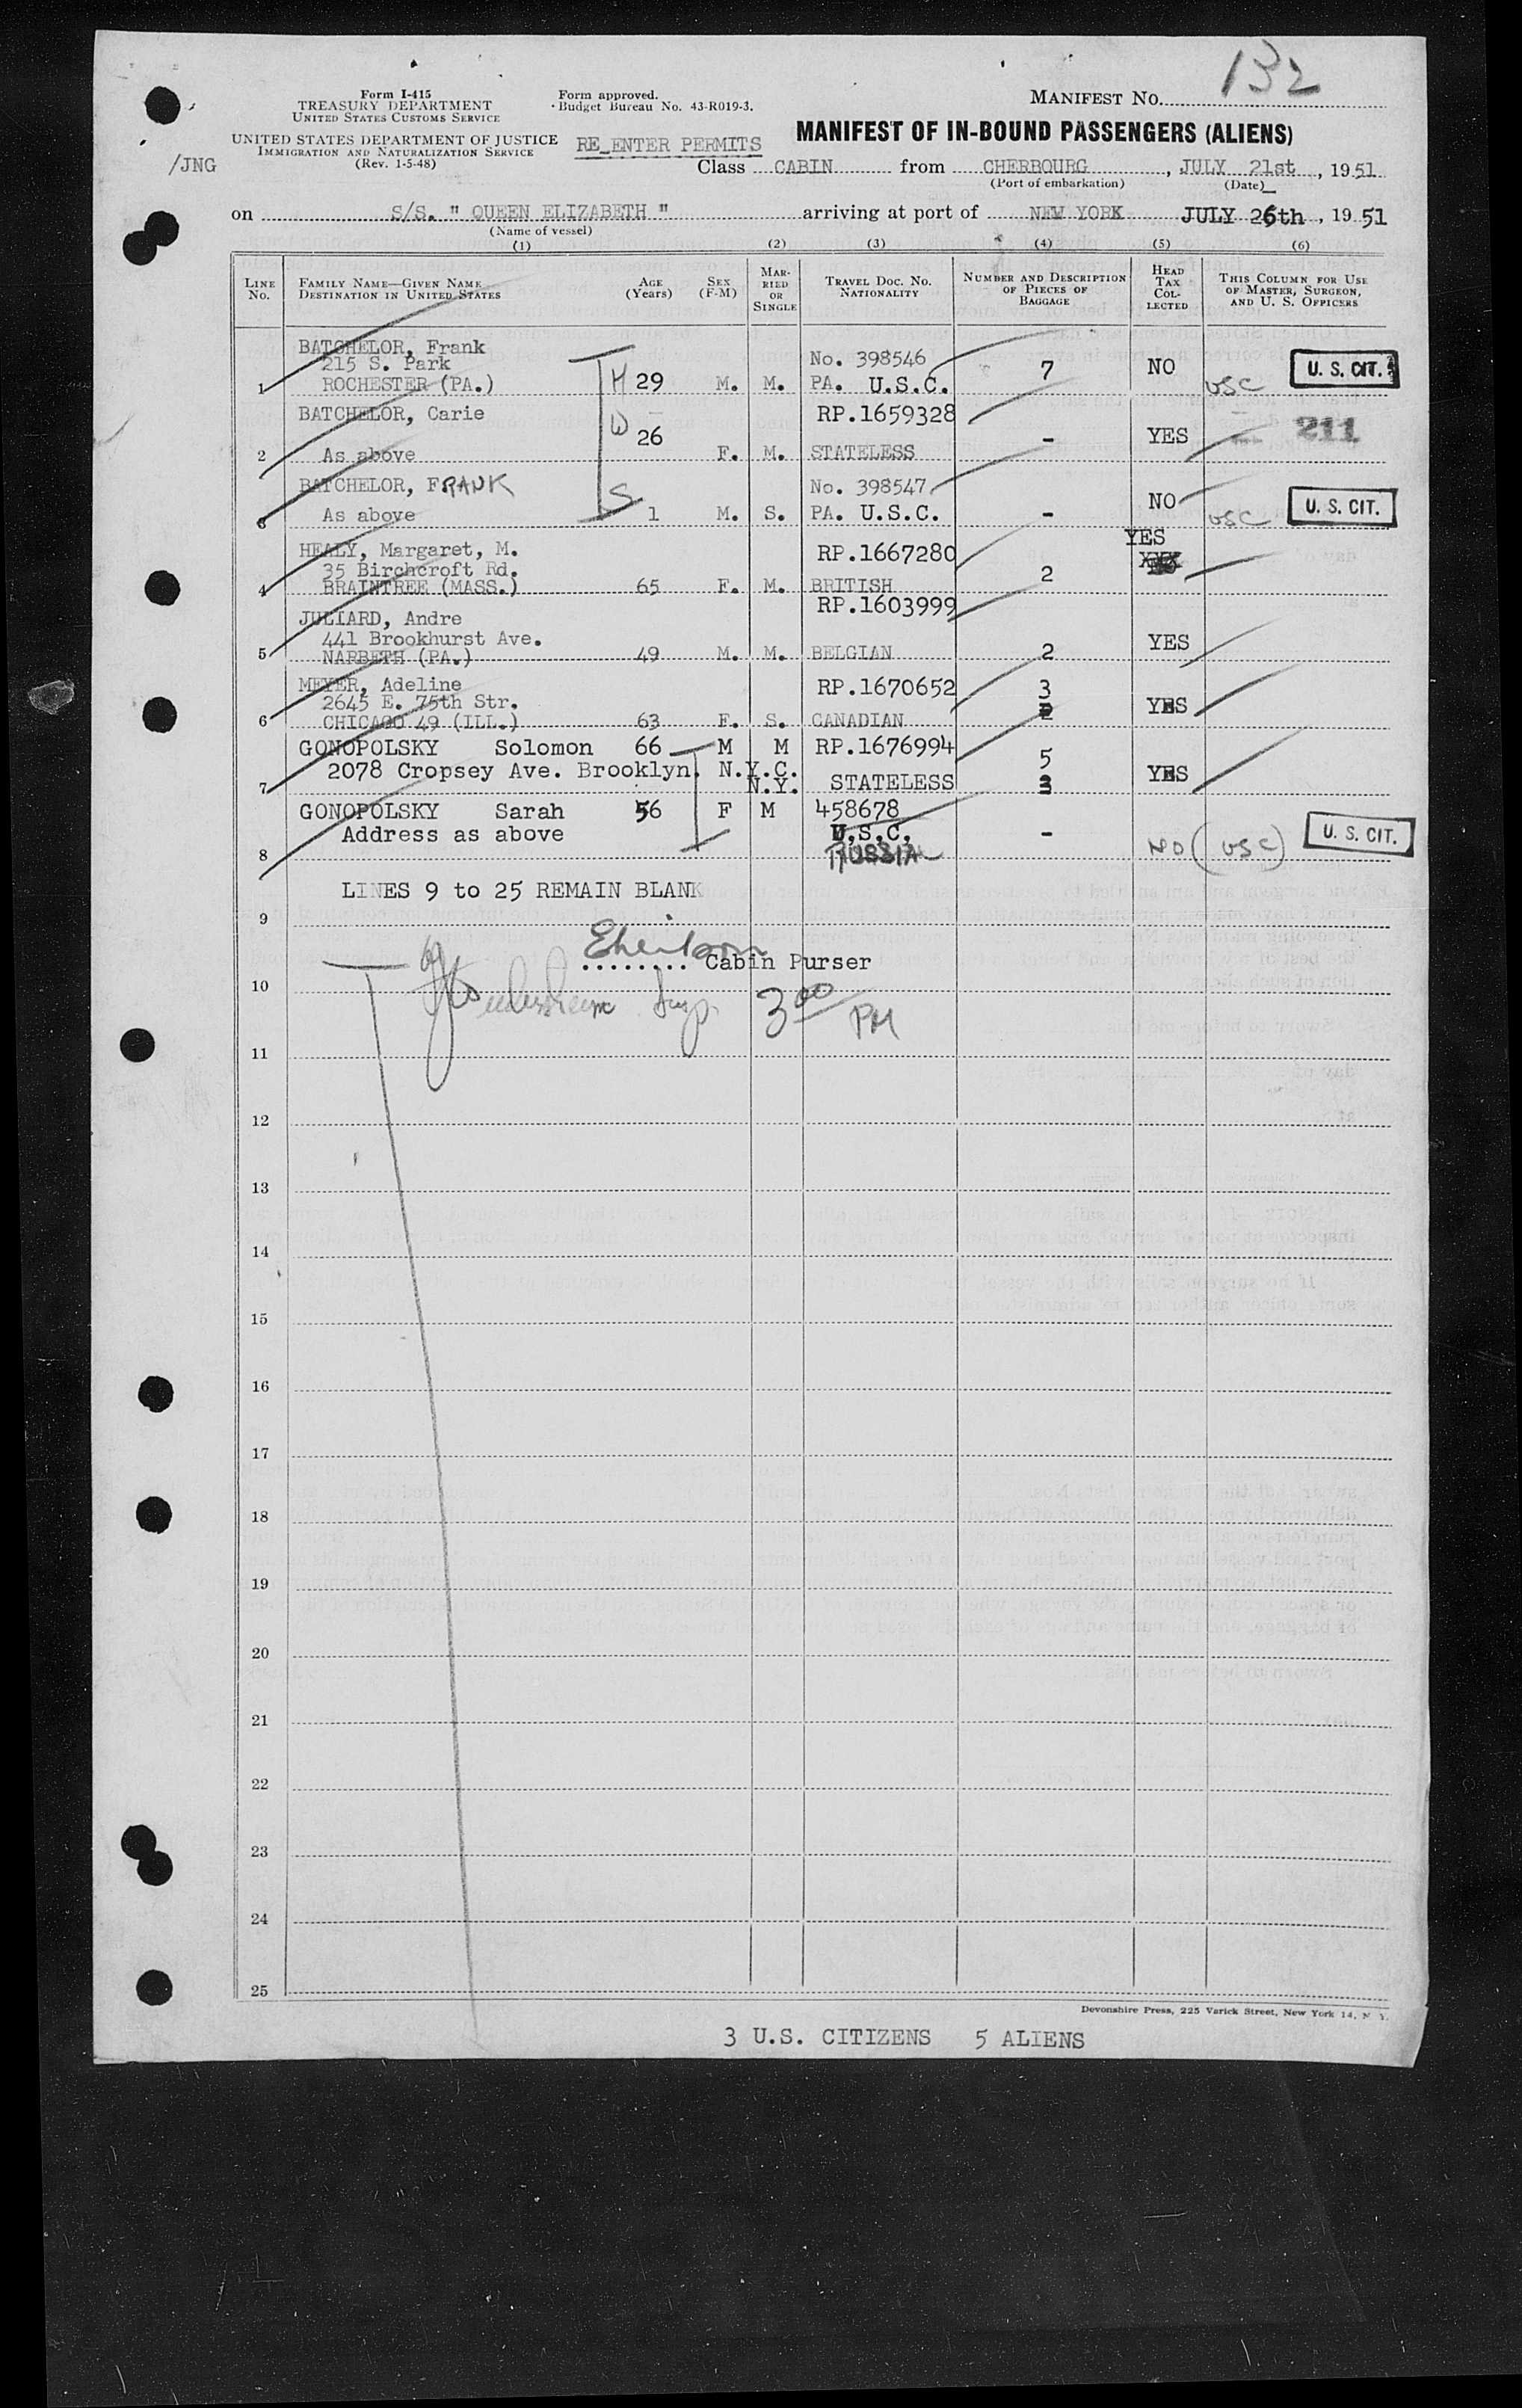 132
Form I-415
TREASURY DEPARTMENT
UNITED STATES CUSTOMS SERVICE
UNITED STATES DEPARTMENT OF JUSTICE
IMMIGRATION AND NATURALIZATION SERVICE
(Rev. 1-5-48)
/JNG
Form approved.
Budget Bureau No. 43-R019-3.
RE_ENTER PERMITS
MANIFEST No.
MANIFEST OF IN-BOUND PASSENGERS (ALIENS)
Class CABIN from CHERBOURG, JULY 21st, 1951
(Port of embarkation) (Date)
on S/S. " QUEEN ELIZABETH " arriving at port of NEW YORK JULY 26th, 19 51
(Name of vessel)
(1) (2) (3) (4) (5) (6)
LINE No. FAMILY NAME—GIVEN NAME DESTINATION IN UNITED STATES AGE (Years) SEX (F-M) MARRIED OR SINGLE TRAVEL DOC. NO. NATIONALITY NUMBER AND DESCRIPTION OF PIECES OF BAGGAGE HEAD TAX COLLECTED THIS COLUMN FOR USE OF MASTER, SURGEON, AND U. S. OFFICERS
BATCHELOR, Frank No. 398546
215 S. Park 7 NO U. S. CIT.
1 ROCHESTER (PA.) H 29 M. M. PA. U.S.C. USC
BATCHELOR, Carie W 26 RP.1659328 - YES 211
2 As above F. M. STATELESS
BATCHELOR, FRANK S No. 398547 NO U. S. CIT.
3 As above 1 M. S. PA. U.S.C. - USC
HEALY, Margaret, M. RP.1667280 YES
35 Birchcroft Rd. 2 XXX
4 BRAINTREE (MASS.) 65 F. M. BRITISH
JULIARD, Andre RP.1603999
441 Brookhurst Ave. YES
5 NARBETH (PA.) 49 M. M. BELGIAN 2
MEYER, Adeline RP.1670652 3
2645 E. 75th Str. YES
6 CHICAGO 49 (ILL.) 63 F. S. CANADIAN
GONOPOLSKY Solomon 66 M M RP.1676994 5
2078 Cropsey Ave. Brooklyn. N.Y.C. YES
7 N.Y. STATELESS 3
GONOPOLSKY Sarah 56 F M 458678
Address as above U.S.C. - NO (USC) U. S. CIT.
8 RUSSIA
LINES 9 to 25 REMAIN BLANK
9
........ Cabin Purser
10
Insp. 3 00 PM
11
12
13
14
15
16
17
18
19
20
21
22
23
24
25
Devonshire Press, 225 Varick Street, New York 14, N. Y.
3 U.S. CITIZENS 5 ALIENS